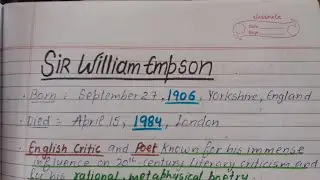 classmate
Date
Page
Sir William Empson
• Born : September 27, 1906, Yorkshire, England
• Died = April 15, 1984, London
• English Critic and Poet known for his immense
influence on 20th century literary criticism and
for his rational, metaphysical poetry.